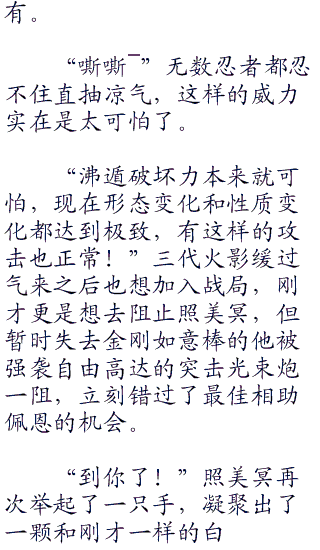 有。
“嘶嘶¯”无数忍者都忍
不住直抽凉气，这样的威力
实在是太可怕了。
“沸遁破坏力本来就可
怕，现在形态变化和性质变
化都达到极致，有这样的攻
击也正常！”三代火影缓过
气来之后也想加入战局，刚
才更是想去阻止照美冥，但
暂时失去金刚如意棒的他被
强袭自由高达的突击光束炮
一阻，立刻错过了最佳相助
佩恩的机会。
“到你了！”照美冥再
次举起了一只手，凝聚出了
一颗和刚才一样的白